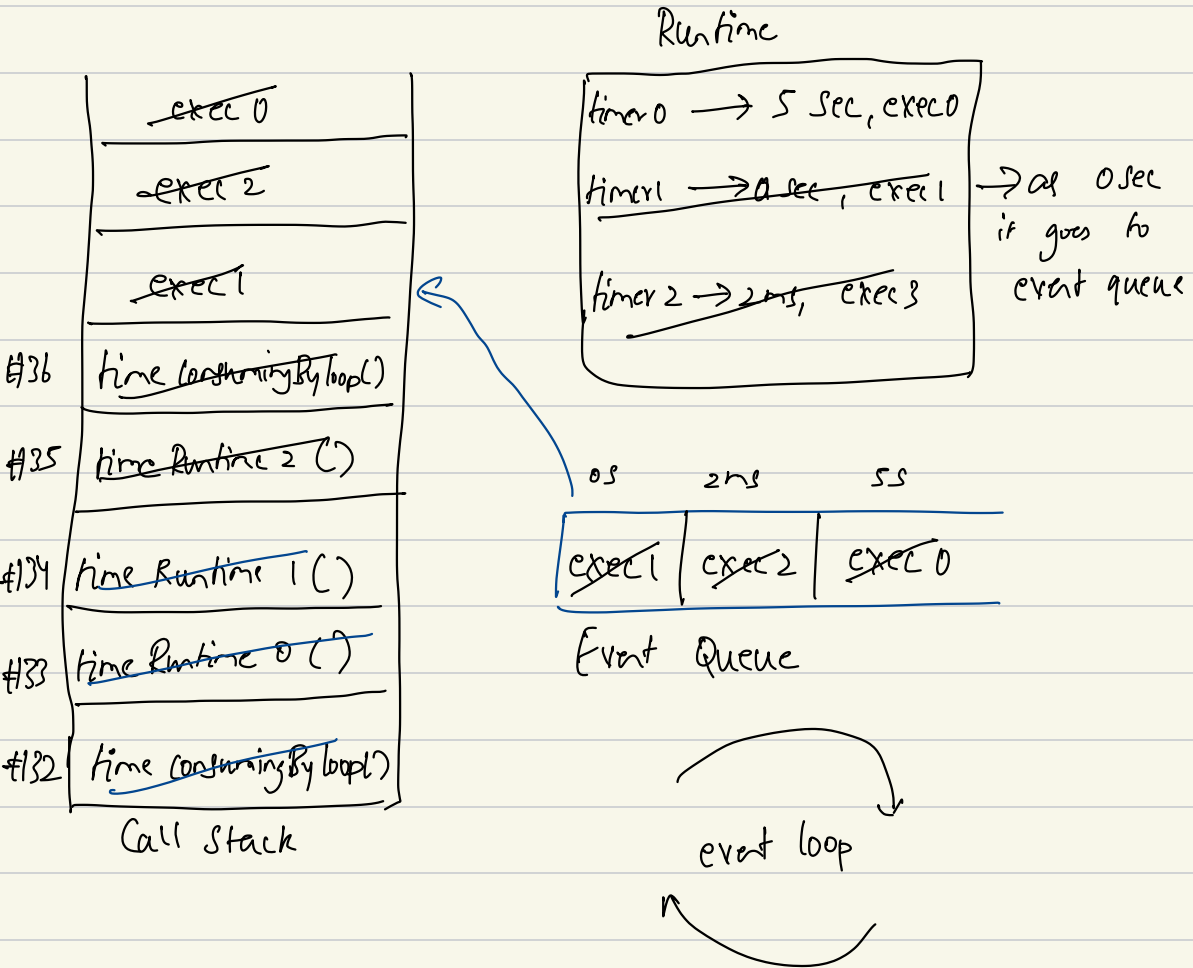 Runtime
exec 0
exec 2
exec 1
#36 time consumingByloop()
#35 time Runtime 2 ()
#34 time Runtime 1 ()
#33 time Runtime 0 ()
#32 time consumingByloop()
Call Stack
timer 0 → 5 sec, exec0
timer1 → 0 sec, exec1
timer 2 → 2ms, exec3
→ as 0sec
it goes to
event queue
0s 2ms 5s
exec1 exec2 exec 0
Event Queue
event loop